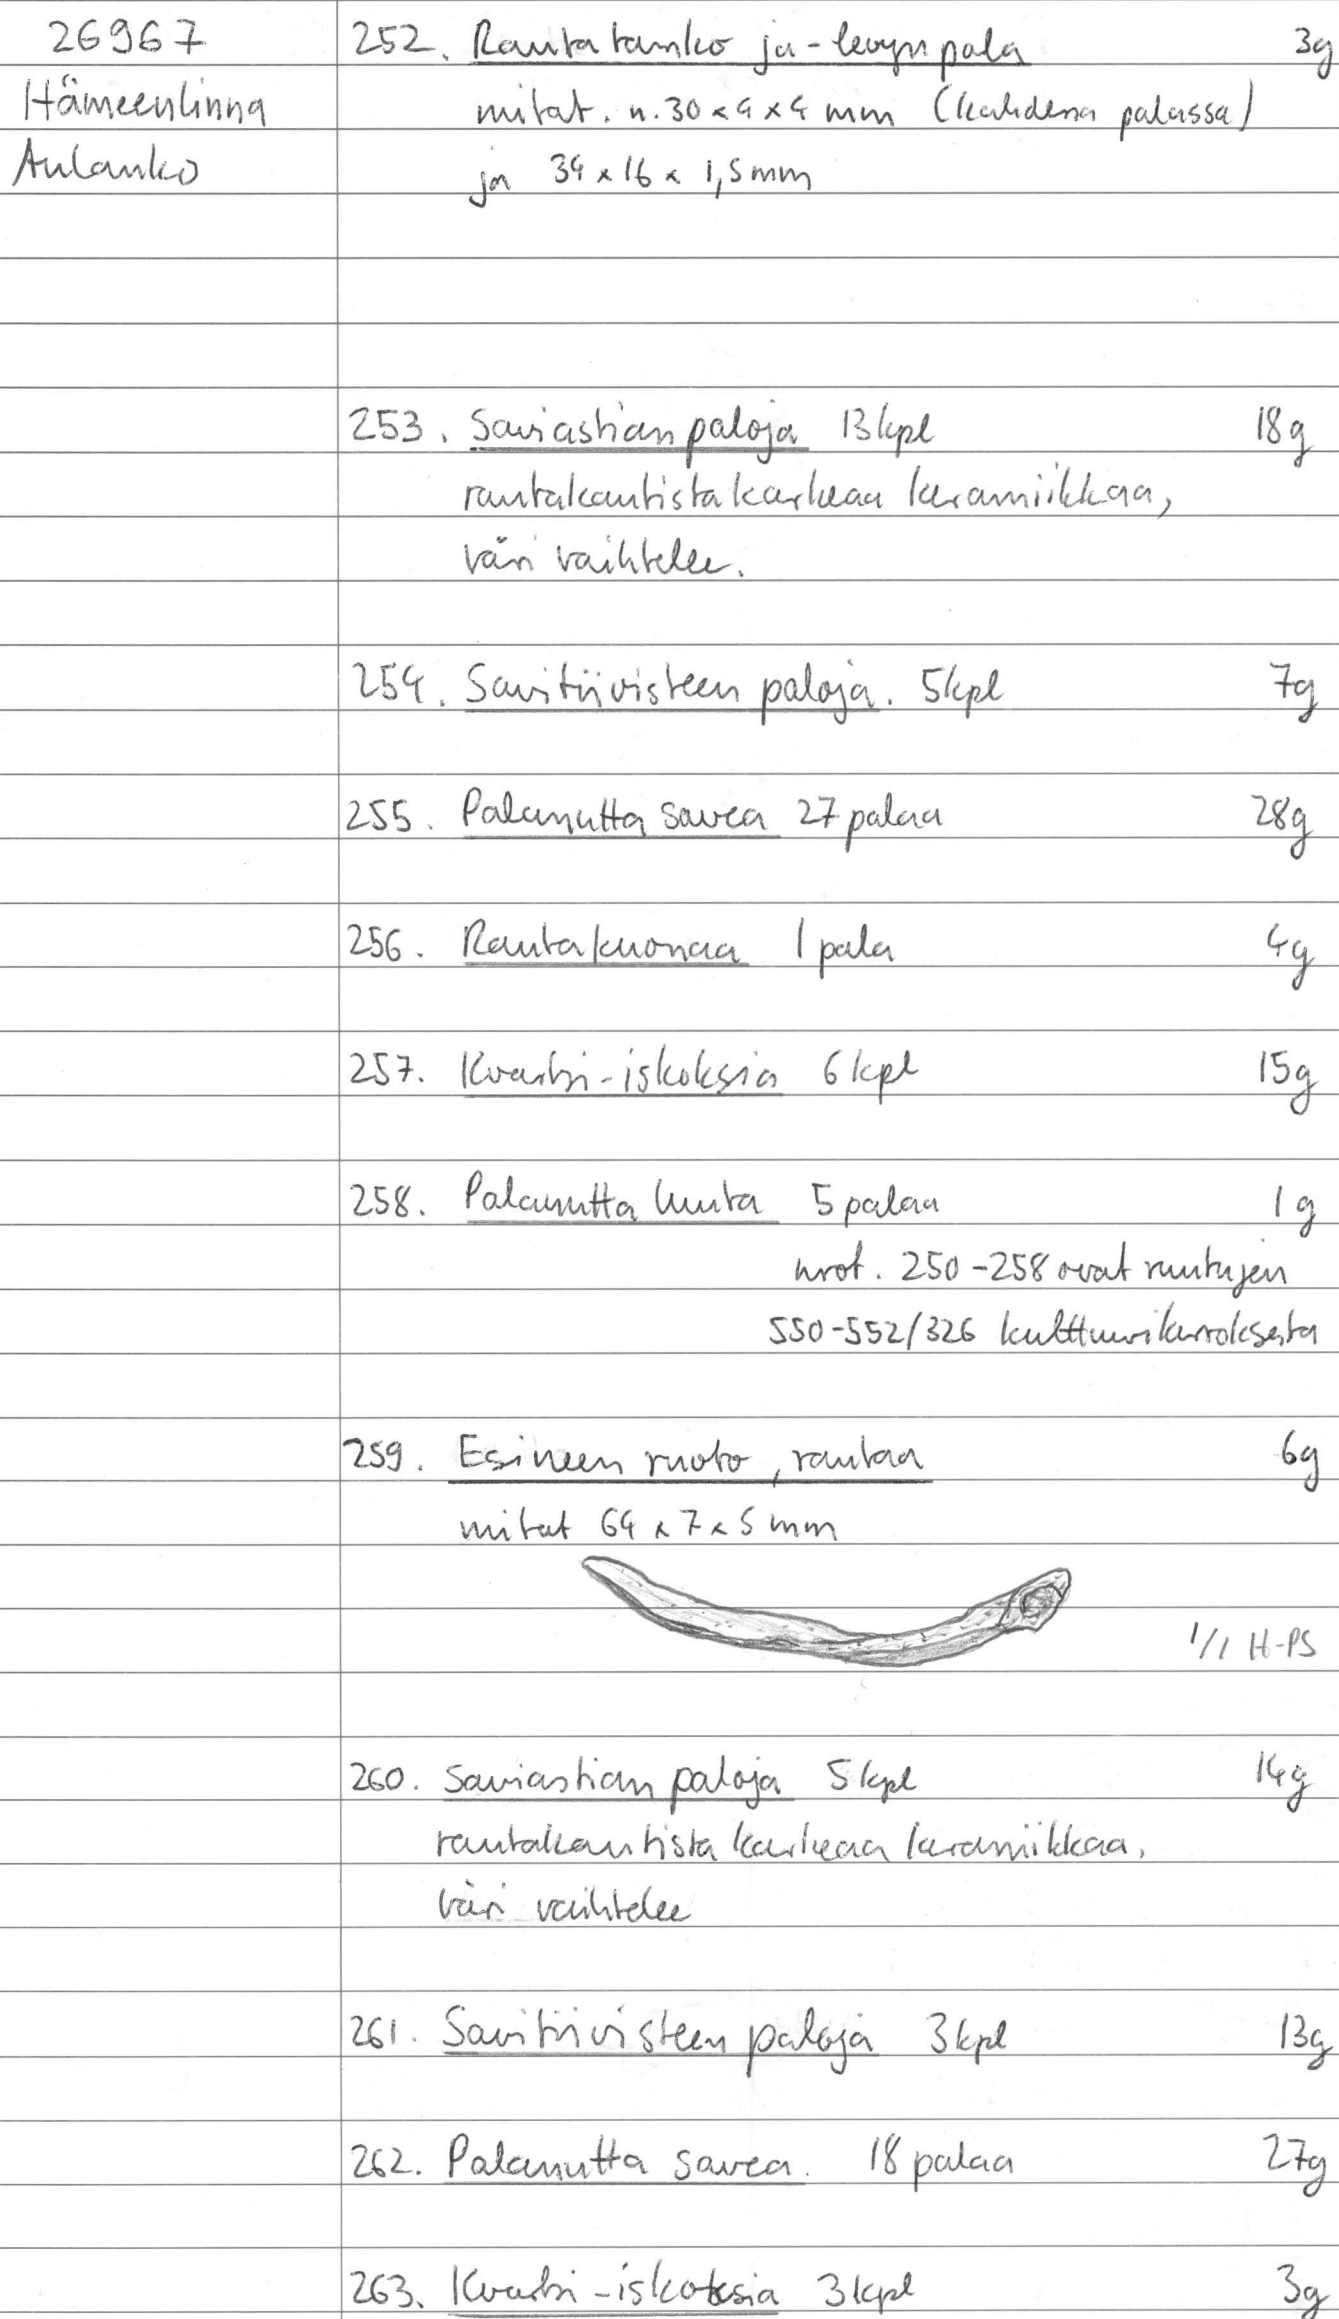 26967
Hämeenlinna
Aulanko
252. Rautatanko ja -levyn pala 3g
mitat. n. 30 x 4 x 4 mm (kahdessa palassa)
ja 34 x 16 x 1,5 mm
253. Saviastian paloja 13 kpl 18g
rautakautista karkeaa keramiikkaa,
väri vaihtelee.
254. Savitiivisteen paloja. 5 kpl 7g
255. Palanutta savea 27 palaa 28g
256. Rautakuonaa 1 pala 4g
257. Kvartsi-iskoksia 6 kpl 15g
258. Palanutta luuta 5 palaa 1 g
nrot. 250-258 ovat ruutujen
550-552/326 kulttuurikerroksesta
259. Esineen ruoto, rautaa 6g
mitat 64 x 7 x 5 mm
1/1 H-PS
260. Saviastian paloja 5 kpl 14g
rautakautista karkeaa keramiikkaa,
väri vaihtelee
261. Savitiivisteen paloja 3 kpl 13g
262. Palanutta savea. 18 palaa 27g
263. Kvartsi-iskoksia 3 kpl 3g